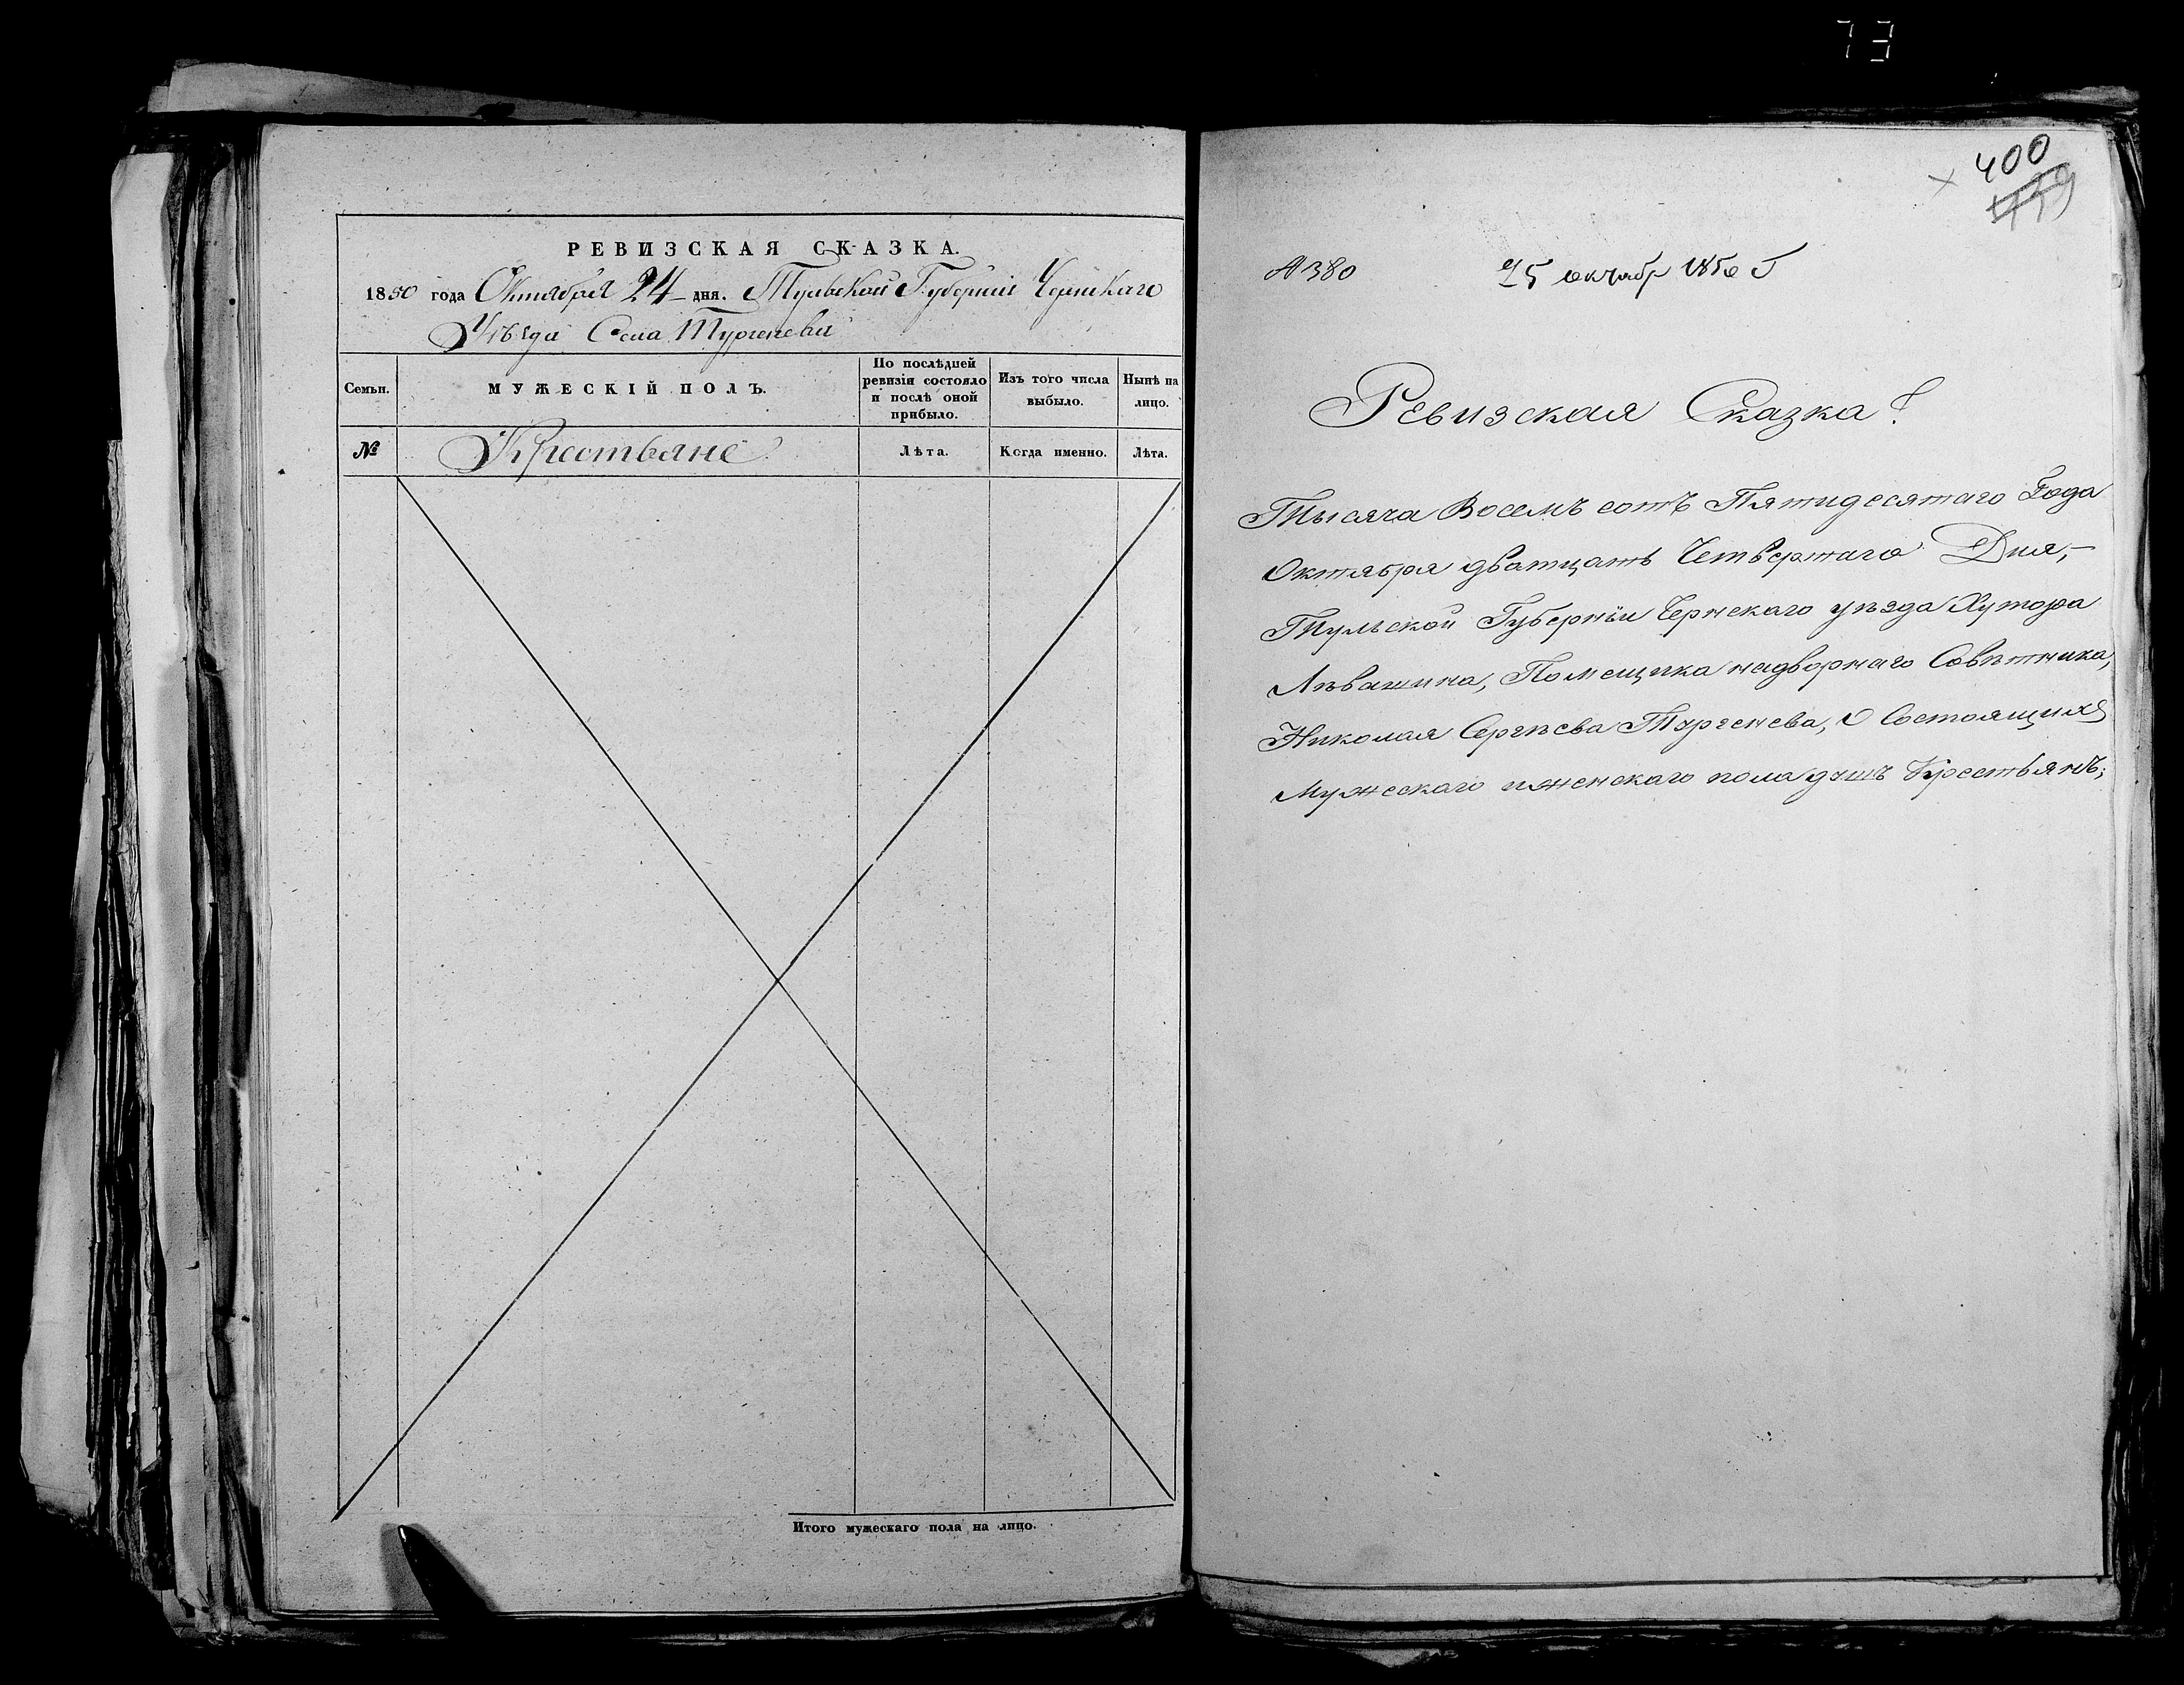 73
РЕВИЗСКАЯ СКАЗКА.
1850 года Октября 24 дня. Тульской Губерніи Чернскаго
Уѣзда Села Тургенева
Семьи.
МУЖЕСКІЙ ПОЛЪ.
По послѣдней
ревизіи состояло
и послѣ оной
прибыло.
Изъ того числа
выбыло.
Нынѣ на
лицо.
№
Крестьяне
Лѣта.
Когда именно.
Лѣта.
Итого мужескаго пола на лицо.
400
№380
25 октябр 1850 Г
Ревизская Сказка
Тысяча Восемъ сотъ Пятидесятаго Года
Октября дватцать Четвертаго Дня,-
Тульской Губерніи Чернскаго уѣзда Хутора
Лѣвашина, Помещика надворнаго Совѣтника,
Николая Сергѣева Тургенева, О Состоящихъ
Мужескаго иженскаго пола душъ Крестьянъ;